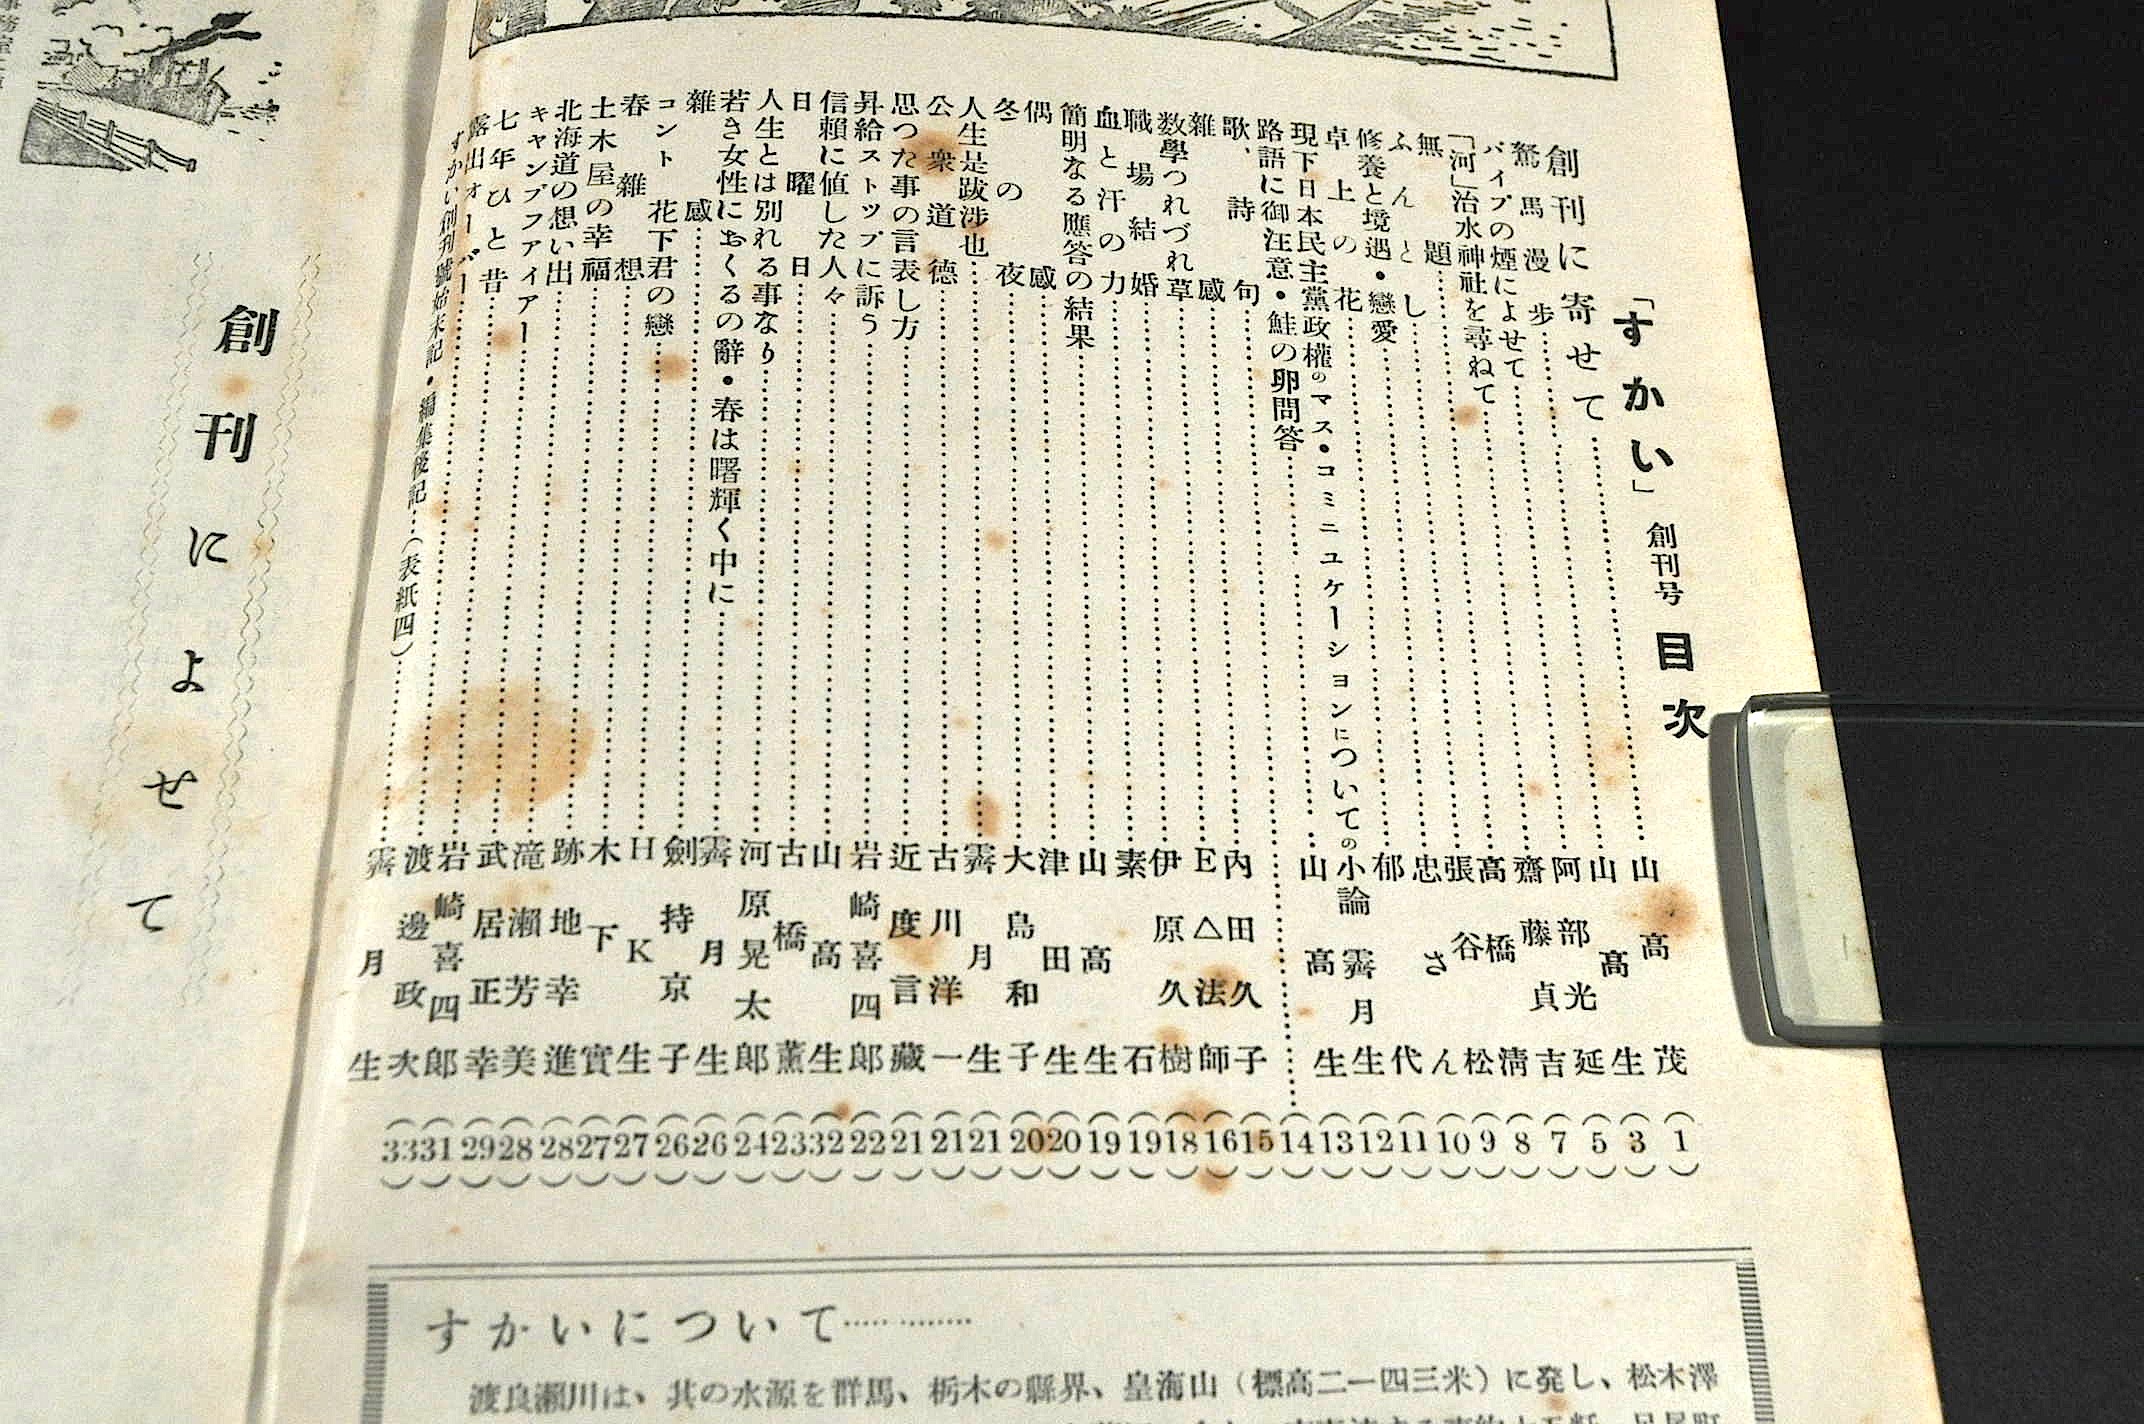 「すかい」創刊号 目次
創刊に寄せて……山高茂（1）
駑馬漫歩……山高生（3）
パイプの煙によせて……阿部光延（5）
「河」治水神社を尋ねて……齋藤貞吉（7）
無題……髙橋清（8）
ふんとし……張谷松（9）
修養と境遇・戀愛……忠さん（10）
卓上の花……郁代（11）
現下日本民主黨政權のマス・コミニュケーションについての小論 霽月生（12）
路語に御注意・鮭の卵問答……山高生（13）
歌、詩句……（14）
雑感……内田久子（15）
数學つれづれ草……E△法師（16）
職場結婚……伊原久樹（18）
血と汗の力……素石（19）
簡明なる應答の結果……山高生（19）
偶感……津田生（20）
冬の夜……大島和子（20）
人生是跋渉也……霽月生（21）
公衆道徳……古川洋一（21）
思つた事の言表し方……近度言藏（21）
昇給ストップに訴う……岩崎喜四郎（22）
信頼に値した人々……山高生（32）
日曜日……古橋薫（23）
人生とは別れる事なり……河原晃太郎（24）
若き女性におくるの辭・春は曙輝く中に……霽月生（26）
雜感……劍持京子（26）
コント 花下君の戀……HK生（27）
春雜想……木下實（27）
土木屋の幸福……跡地幸進（28）
北海道の想い出……滝瀬芳美（28）
キャンプファイアー……武居正幸（29）
七年ひと昔……岩崎喜四郎（31）
露出オーバー……渡邊政次（33）
すかい創刊號始末記・編集後記……（表紙四）……霽月生
すかいについて…………
渡良瀬川は、其の水源を群馬、栃木の縣界、皇海山（標高二一四三米）に発し、松木澤
創刊によせて